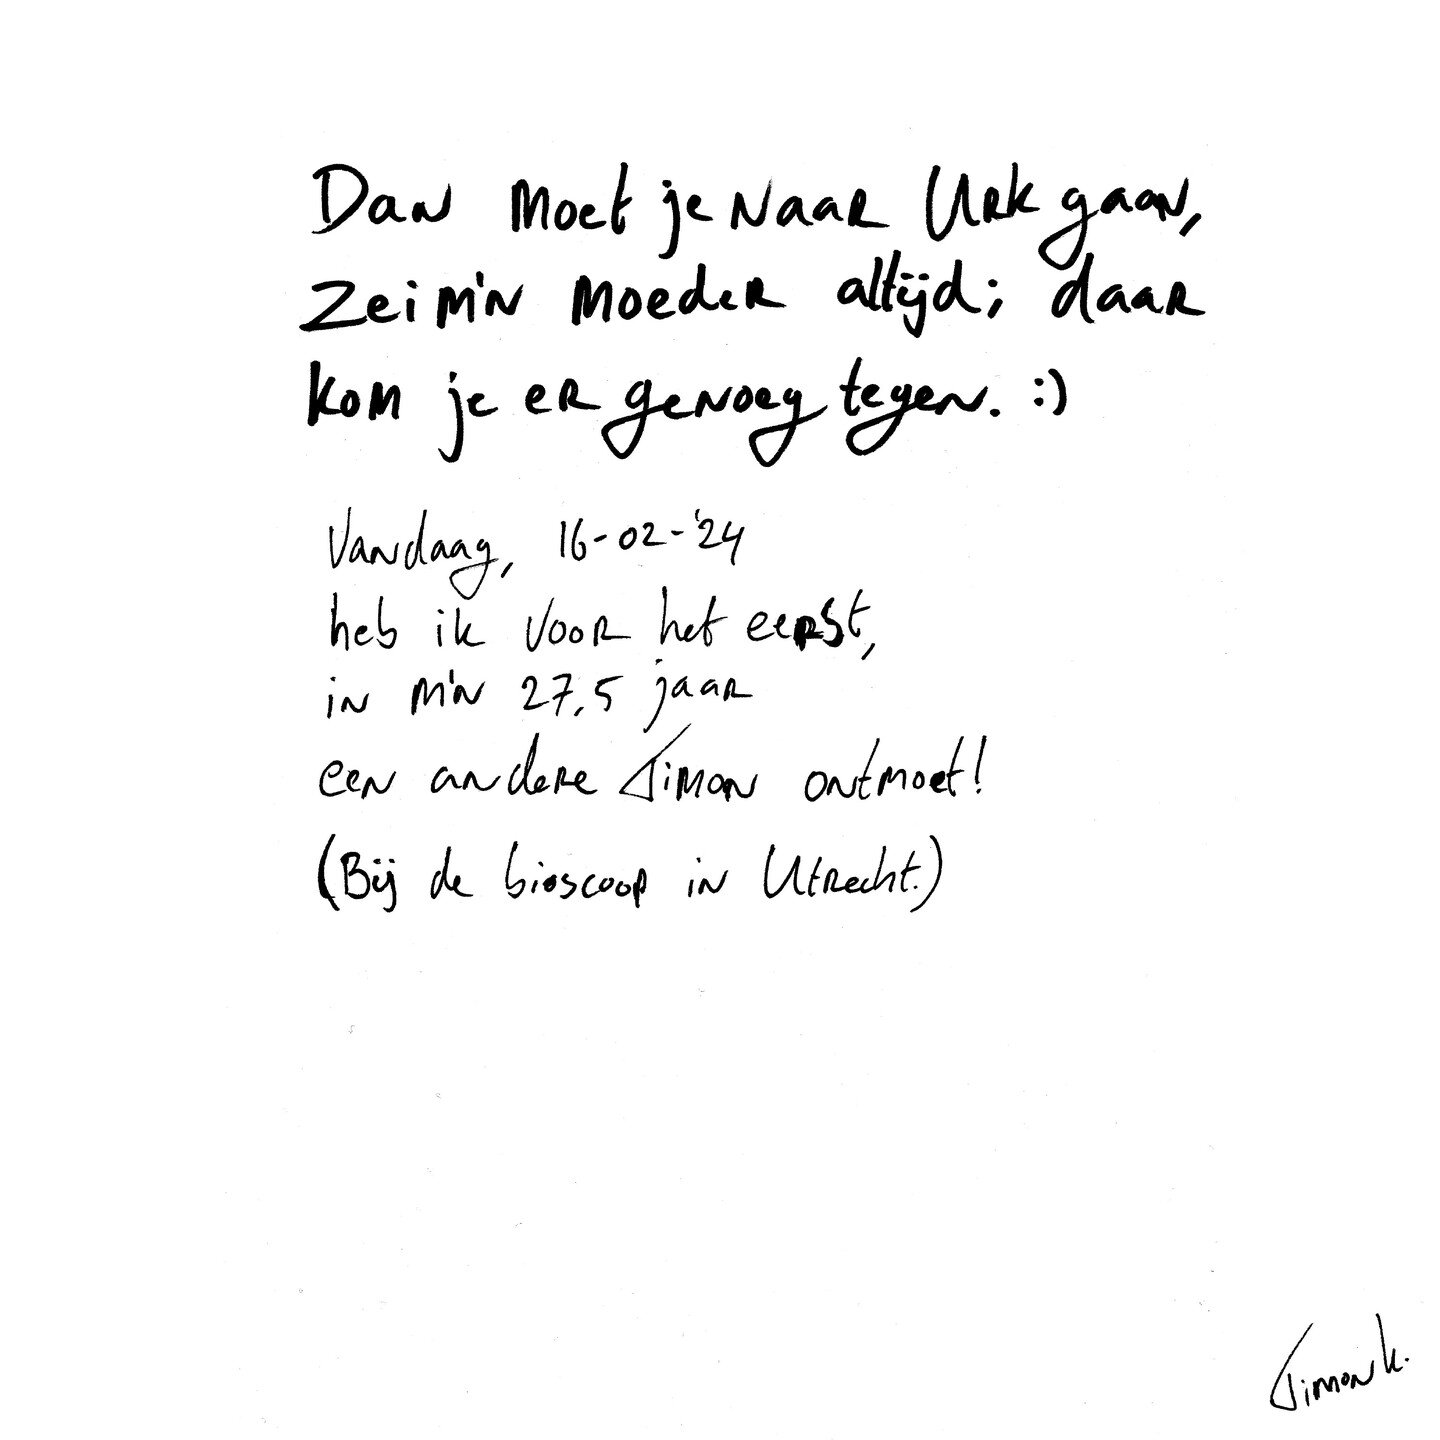 Dan moet je naar Urk gaan,
zei m'n moeder altijd; daar
kom je er genoeg tegen. :)
Vandaag, 16-02-'24
heb ik voor het eerst,
in m'n 27,5 jaar
een andere Timon ontmoet!
(Bij de bioscoop in Utrecht.)
Timon k.